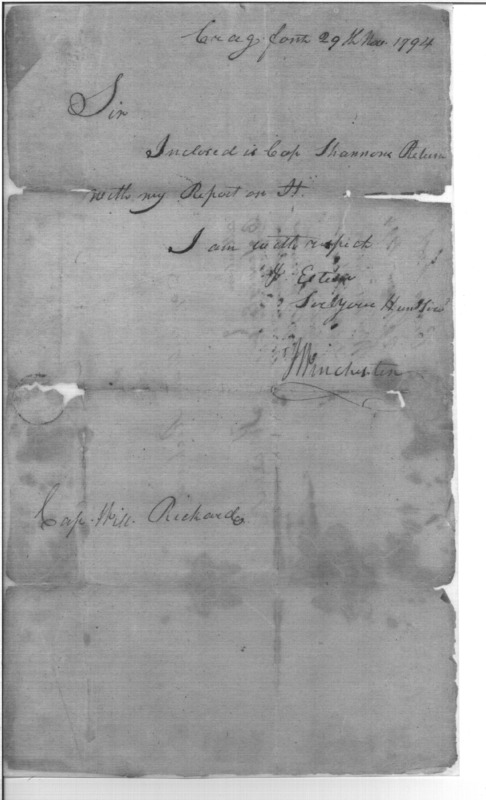 Cragfont 29th Nov. 1794
Sir
Inclosed is Cap Shannons Return
with my Report on It.
I am with respect
& Esteem
Sir Your Humb Ser
JWinchester
Cap. Will. Richards